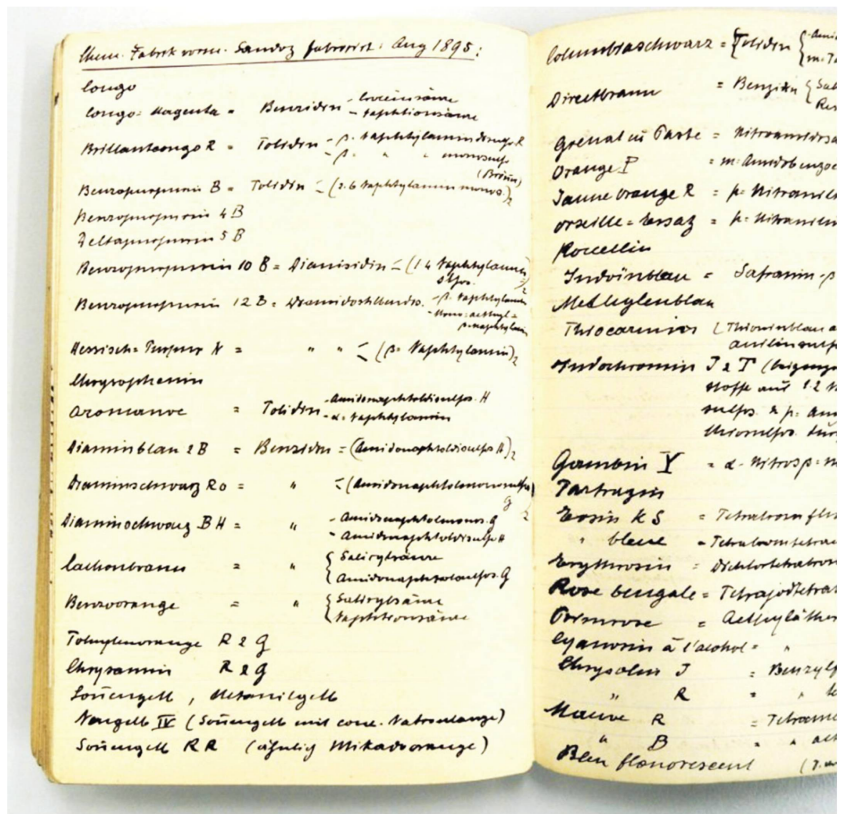 Chem. Fabrik vorm. Sandoz fabricirt: Aug 1895:
Congo
Congo-Magenta = Benzidin - Croceinsäure
- Naphtionsäure
Brillantcongo R = Tolidin - β. Naphtylamindisulfo R
- β. " " monosulf
(Brönn)
Benzopurpurin B = Tolidin = (2.6 Naphtylamin monos.)2
Benzopurpurin 4 B
Deltapurpurin 5 B
Benzopurpurin 10 B = Dianisidin = (1 4 Naphtylamin
Sfos. )2
Benzopurpurin 12 B = Diamidostilbendis. - β. Naphtylamin
- Mono-aethyl-
β-naphtylam
Hessisch-Purpur N = " " = (β- Naphtylamin)2
Chrysophenin
= Tolidin - Amidonaphtoldisulfos. H
- α-Naphtylamin
Diaminblau 2 B = Benzidin = (Amidonaphtoldisulfos H)2
Diaminschwarz Ro = " = (Amidonaphtolmonosulfos)
G 2
Diaminschwarz B H = " - Amidonaphtolmonos. G
- Amidonaphtoldisulfo H
= " { Salicylsäure
Amidonaphtolsulfos. G
Benzoorange = " { Salicylsäure
Naphtionsäure
Toluylenorange R & G
Chrysamin R & G
Sonnengelb, Metanilgelb
Naugelb IV (Sonnengelb mit conc. Natronlauge)
Sonnengelb RR (ähnlig Mikadoorange)
Columbiaschwarz = { Tolidin { Amid
m-T
Directbraun = Benzidin { Sal
Res
Grenat en Paste = Nitroamidosa
Orange P = m-Amidobenzoe
Jaune orange R = p-Nitranil
Orseille-Ersaz = p-Nitranilin
Roccellin
Indoinblau = Safranin-β
Methylenblau
Thiocarmin (Thioninblau a
anilinsulf
Indochromin J & T
stoffe aus 1 2 N
sulfos. & p. Am
thiosulfos. dur
Gambin Y = α-Nitroso β-N
Tartrazin
Eosin KS = Tetrabrom flu
" bleue = Tetrabromtetrac
Erythrosin = Dichlortetrabrom
Rose bengale = Tetrajodtetra
Primrose = Aethyläther
Cyanosin à l'alcohol = "
Chrysolin J = Benzylf
" R = "
Mauve R = Tetrame
" B = " aet
Bleu fluorescent